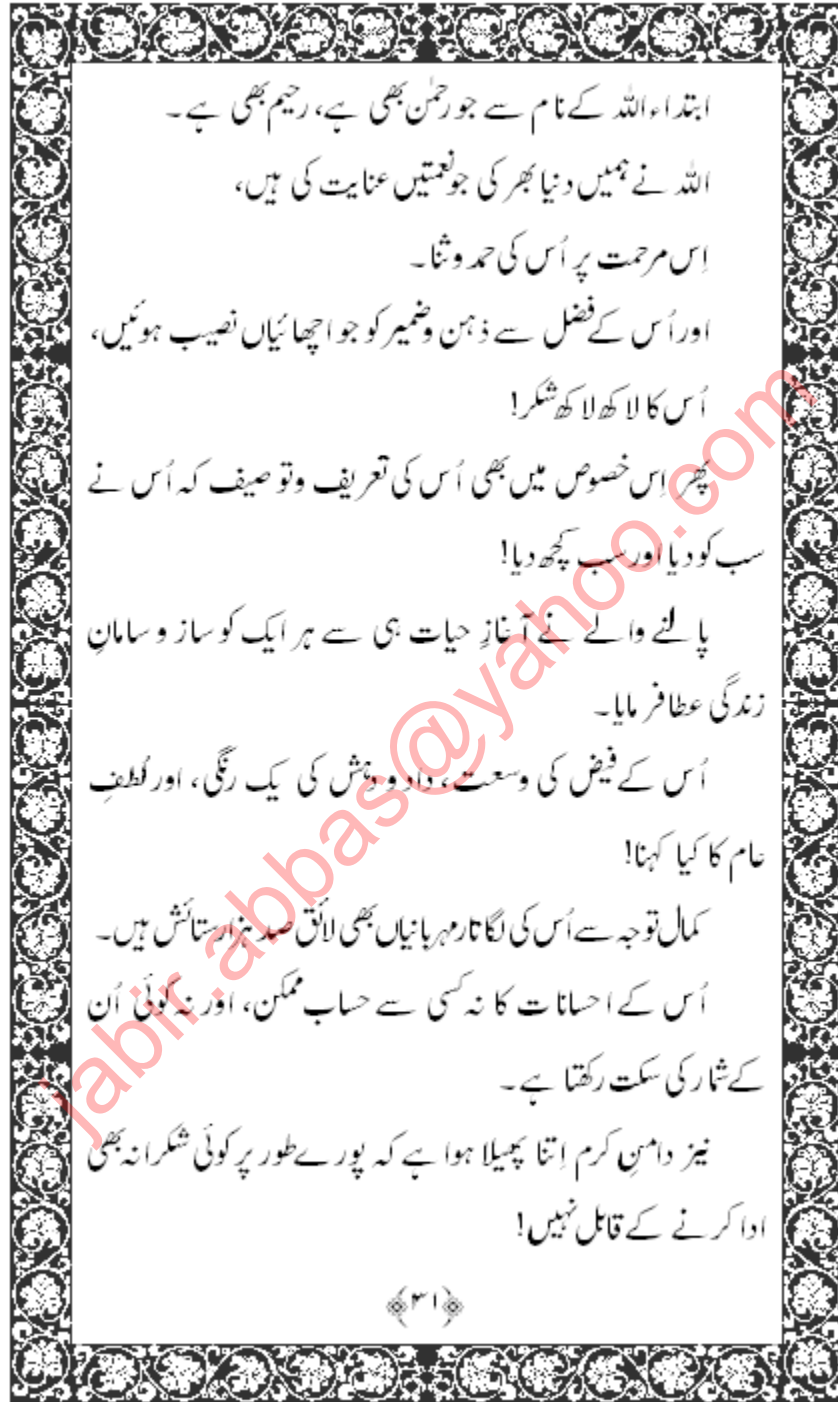 ابتداء اللہ کے نام سے جو رحمٰن بھی ہے، رحیم بھی ہے۔
اللہ نے ہمیں دنیا بھر کی جو نعمتیں عنایت کی ہیں،
اِس مرحمت پر اُس کی حمد و ثنا۔
اور اُس کے فضل سے ذہن و ضمیر کو جو اچھائیاں نصیب ہوئیں،
اُس کا لاکھ لاکھ شکر!
پھر اِس خصوص میں بھی اُس کی تعریف و توصیف کہ اُس نے
سب کو دیا اور سب کچھ دیا!
پالنے والے نے آغازِ حیات ہی سے ہر ایک کو ساز و سامانِ
زندگی عطا فرمایا۔
اُس کے فیض کی وسعت، داد و دہش کی یک رنگی، اور لُطفِ
عام کا کیا کہنا!
کمال توجہ سے اُس کی لگاتار مہربانیاں بھی لائق صد ہزار ستائش ہیں۔
اُس کے احسانات کا نہ کسی سے حساب ممکن، اور نہ کوئی اُن
کے شمار کی سکت رکھتا ہے۔
نیز دامنِ کرم اِتنا پھیلا ہوا ہے کہ پورے طور پر کوئی شکرانہ بھی
ادا کرنے کے قابل نہیں!
﴿۳۱﴾
jabir.abbas@yahoo.com